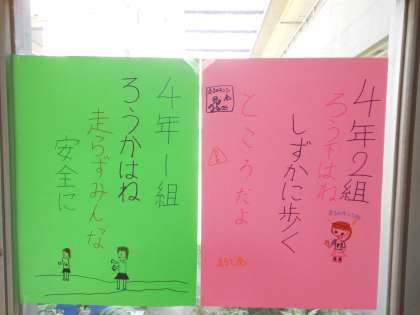 4年1組
ろうかはね
走らずみんな
安全に
4年2組
ろう下はね
しずかに歩く
ところだよ